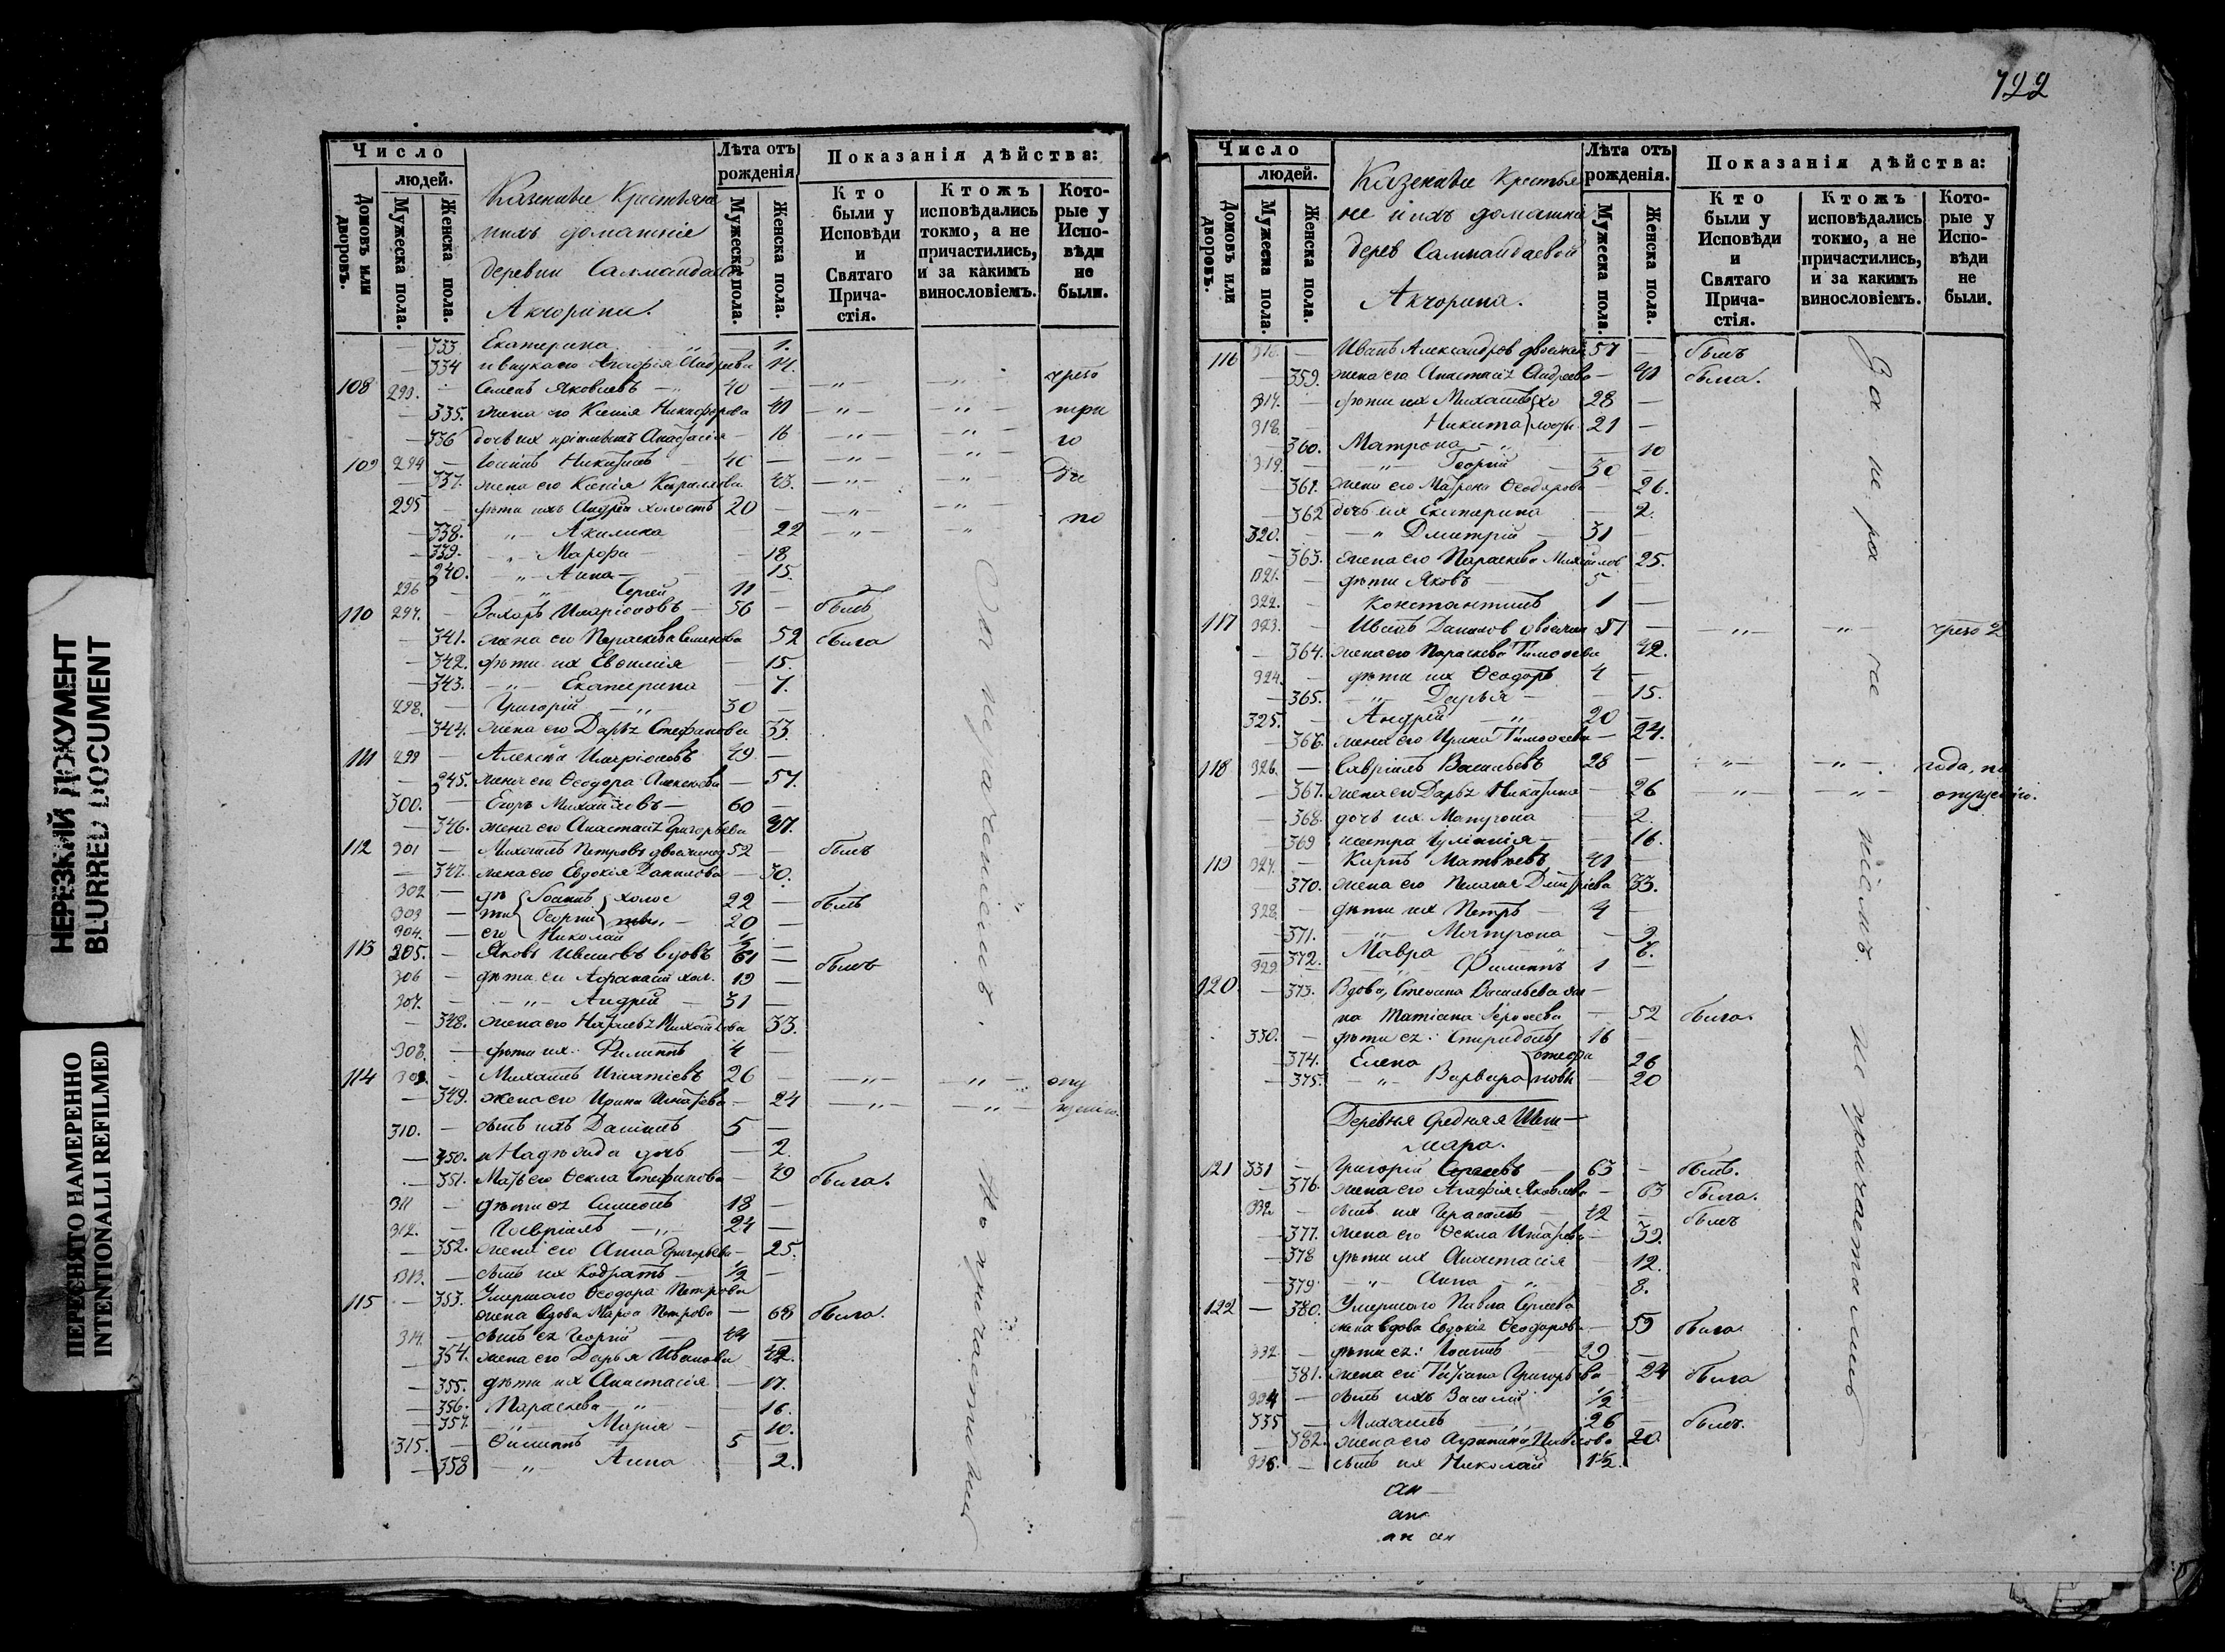 НЕРЕЗКИЙ ДОКУМЕНТ
BLURRED DOCUMENT
ПЕРЕСНЯТО НАМЕРЕННО
INTENTIONALLI REFILMED
Число
людей.
Домовъ или дворовъ.
Мужеска пола.
Женска пола.
Казенные Крестьяне
ихъ домашніе
деревни
Акчорина.
Лѣта отъ рожденія
Мужеска пола.
Женска пола.
Показанія дѣйства:
Кто были у Исповѣди и Святаго Прича-стія.
Ктожъ исповѣдались токмо, а не причастились, и за какимъ винословіемъ.
Кото-рые у Испо-вѣди не были.
333 Екатерина 1.
334 и внука его Агафія Андреева 14.
108 293. Семенъ Яковлевъ 40 чрезъ
335. жена его Ксенія Никифорова 41 три
336 дочь их Анастасія 16 го
109 294 Никитинъ 46
337. жена его Ксенія 43. да
295 дѣти ихъ Андрей холостъ 20 по
338. Акилина 22
339. Марфа 18
340. Анна 15.
296 Сергей 11
110 297. Захаръ Иларіоновъ 56 былъ
341. жена его Параскева Семенова 52 была
342. дѣти их Евфимія 15.
343. Екатерина 7.
298. Григорій 30
344. жена его Дарья Стефанова 33.
111 299 Алексѣй Иларіоновъ 49
345. жена его Ѳеодора Алексеева 57.
300. Егоръ Михайловъ 60
346. жена его Анастасія Григорьева 47.
112 301 Михаилъ Петровъ двоеженец 52 былъ
347. жена его Евдокія Данилова 30.
302 дѣ Іоаннъ холос 22 былъ
303 ти Георгій ты 20
304. его Николай 1/2
113 305. Яковъ Ивановъ вдовъ 61 былъ
306 дѣти его Афанасій хол. 19
307. Андрей 31
348. жена его Наталья Михайлова 33.
308. дѣти их Филиппъ 4
114 309. Михаилъ Игнатіевъ 26 опу
349. жена его Ирина Игнатьева 24 щенію
310. сынъ ихъ Даніилъ 5
350. и Надежда дочь 2.
351. Мать его Ѳекла Стефанова 49 была.
311 дѣти ея Симеонъ 18
312. Гавріилъ 24
352. жена его Анна Григорьева 25.
313. сынъ их Кодратъ 1/2
115 353. Умершаго Ѳеодора Петрова
жена вдова Марѳа Петрова 68 была.
314. сынъ ея Георгій 44
354. жена его Дарья Иванова 42.
355. дѣти их Анастасія 17.
356. Параскева 16.
357. Марія 10.
315. Филиппъ 5
358 Анна 2.
не причастились
122
Число
людей.
Домовъ или дворовъ.
Мужеска пола.
Женска пола.
Казенные Крестья
не и ихъ домашніе
дерев
Акчорина.
Лѣта отъ рожденія.
Мужеска пола.
Женска пола.
Показанія дѣйства:
Кто были у Исповѣди и Святаго Прича-стія.
Ктожъ исповѣдались токмо, а не причастились, и за какимъ винословіемъ.
Кото-рые у Испо-вѣди не были.
116 316. Иванъ Александров двоежен 57 былъ
359. жена его Анастасія Андреева 41 была.
317. дѣти их Михаилъ хо 28
318. Никита лосты 21
360. Матрона 10
319. Георгій 30
361. жена его Матрона Ѳеодорова 26.
362 дочь их Екатерина 2.
320. Дмитрій 31
363. жена его Параскева Михайлов 25.
321. дѣти Яковъ 5
322. Константинъ 1
117 323. Иванъ Данилов двоежен 51 чрезъ 2
364. жена его Параскева Тимофеева 42.
324. дѣти их Ѳеодоръ 4
365. Дарья 15.
325. Андрей 20
366. жена его Ирина Тимоѳеева 24.
118 326. Гавріилъ Васильевъ 28 года, по
367. жена его Дарья Никитина 26 опущенію.
368. дочь их Матрона 2.
369 сестра Іуліанія 16.
119 327. Карпъ Матвѣевъ 41
370. жена его Пелагея Дмитріева 33.
328. дѣти их Петръ 4
371. Матрона 9.
372. Мавра 6.
329 Филиппъ 1
120 373. Вдова, Степана Васильева же
на Татіана 52 была.
330. дѣти ея: Спиридонъ 16
374. Елена 26
375. Варвара 20
Деревня Средняя Шем
мара.
121 331 Григорій Сергеевъ 63 былъ.
376. жена его Агафія Яковлева 63 была.
332 сынъ их Герасимъ 42 былъ
377. жена его Ѳекла Игнатьева 39.
378 дѣти их Анастасія 12.
379 Анна 8.
122 380. Умершаго Павла Сергеева
жена вдова Евдокія Ѳеодорова 59 была.
дѣти ея: Іоаннъ 29
381. жена его Татіана Григорьева 24 была
334 сынъ ихъ Василій 1/2
335 Михаилъ 26 былъ.
382. жена его Агрипина Павлова 20
336. сынъ их Николай 1 1/2.
не причастились